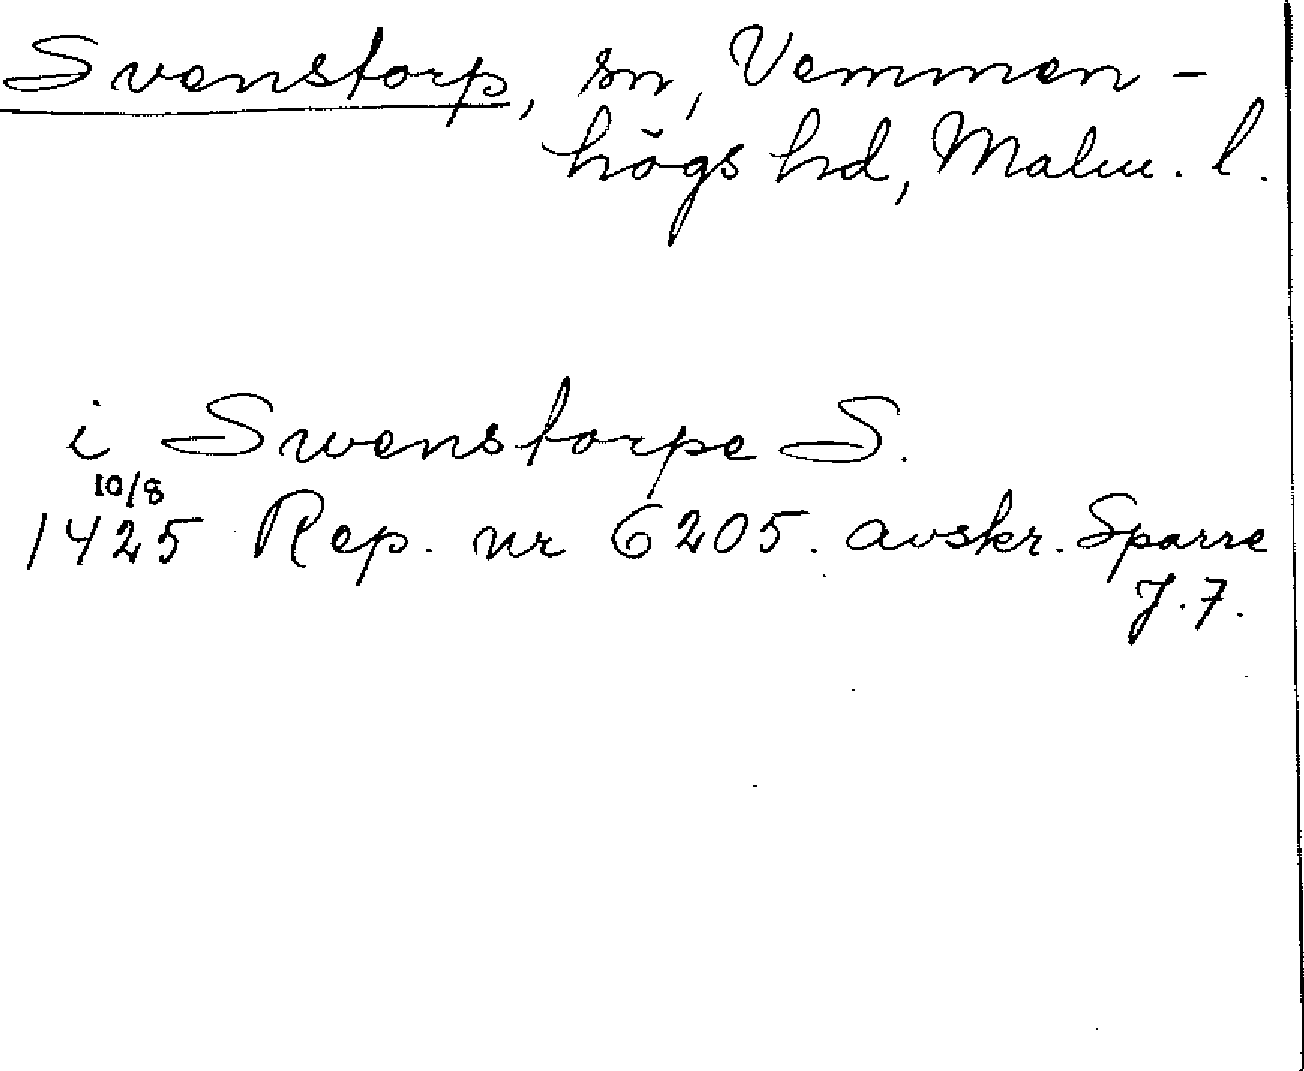 Svenstorp, sn, Vemmen-
högs hd, Malm. l.
i Swenstorpe S.
10/8
1425 Rep. nr 6205. avskr. Sparre
J. 7.